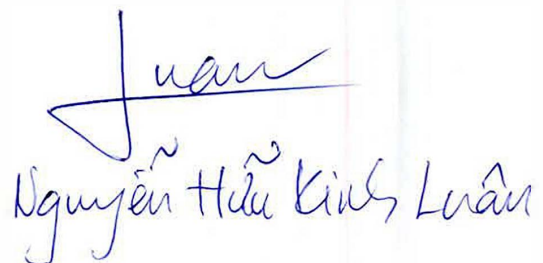 Luan
Nguyễn Hữu Kinh Luân